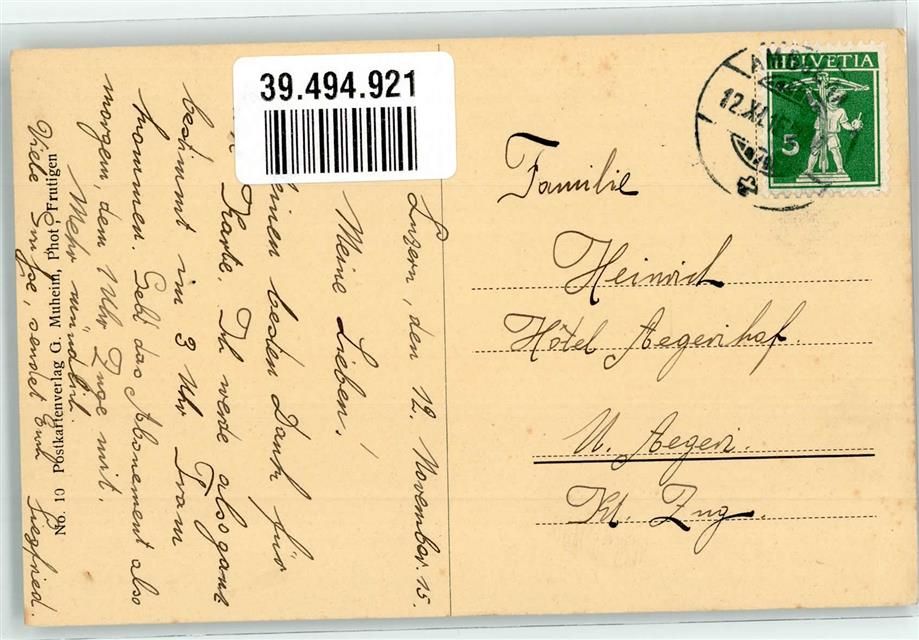 39.494.921
Luzern, den 12. November. 15.
Meine Lieben!
besten Dank für
Karte. Ich werde also ganz
bestimmt im 3 Uhr Tram
kommen. Gebt das Abonement also
morgen, dem Uhr Zuge mit.
Mehr mündlich.
Viele Grüsse, sendet Euch Siegfried.
No. 10 Postkartenverlag G. Muheim, Phot., Frutigen
HELVETIA
5
12.XI.15
Familie
Heinrich
Hôtel Aegerihof.
U. Aegeri.
Kt. Zug.